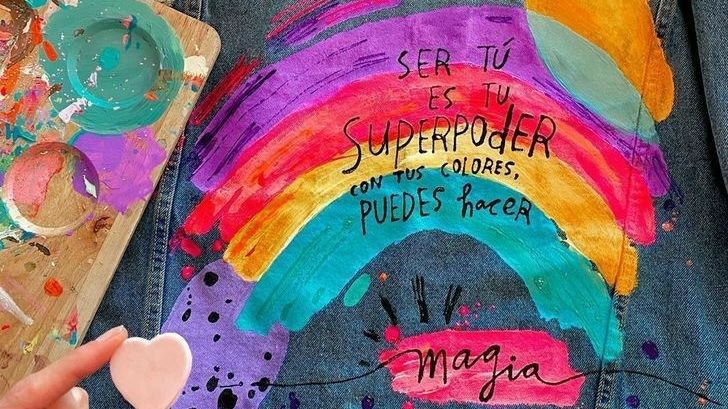 SER TÚ
ES TU
SUPERPODER
CON TUS COLORES,
PUEDES hacer
magia